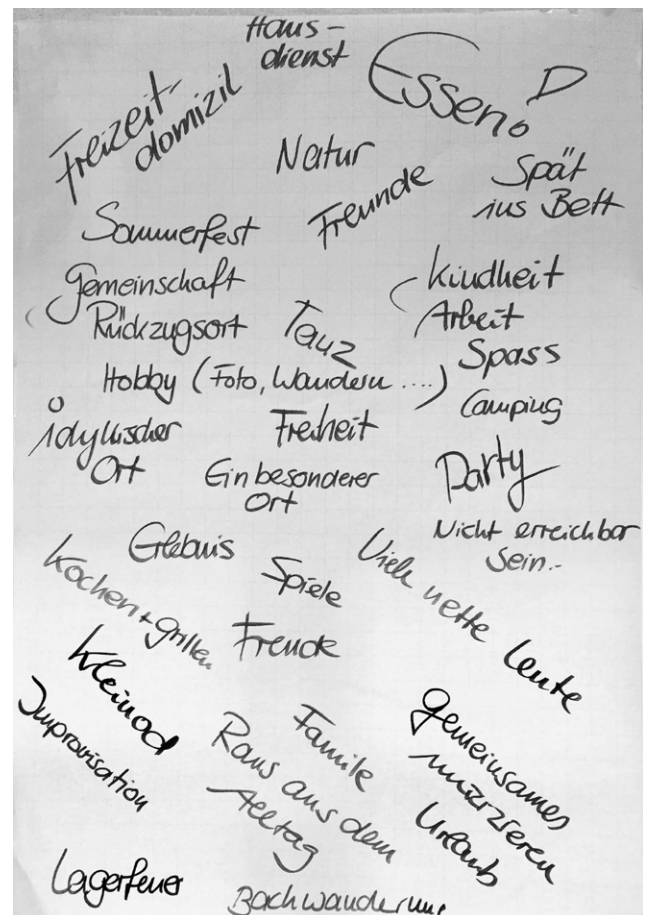 Haus-
dienst
Essen!
Freizeit-
domizil
Natur
Freunde
Spät
ins Bett
Sommerfest
Gemeinschaft
Rückzugsort
Tanz
Kindheit
Arbeit
Spass
Hobby (Foto, Wandern ....)
Camping
idyllischer
Ort
Freiheit
Ein besonderer
Ort
Party
Nicht erreichbar
sein..
Erlebnis
Spiele
Viele nette Leute
Kochen + grillen
Freude
Kleinod
Improvisation
Familie
Raus aus dem
Alltag
gemeinsames
musizieren
Urlaub
Lagerfeuer
Bachwanderung